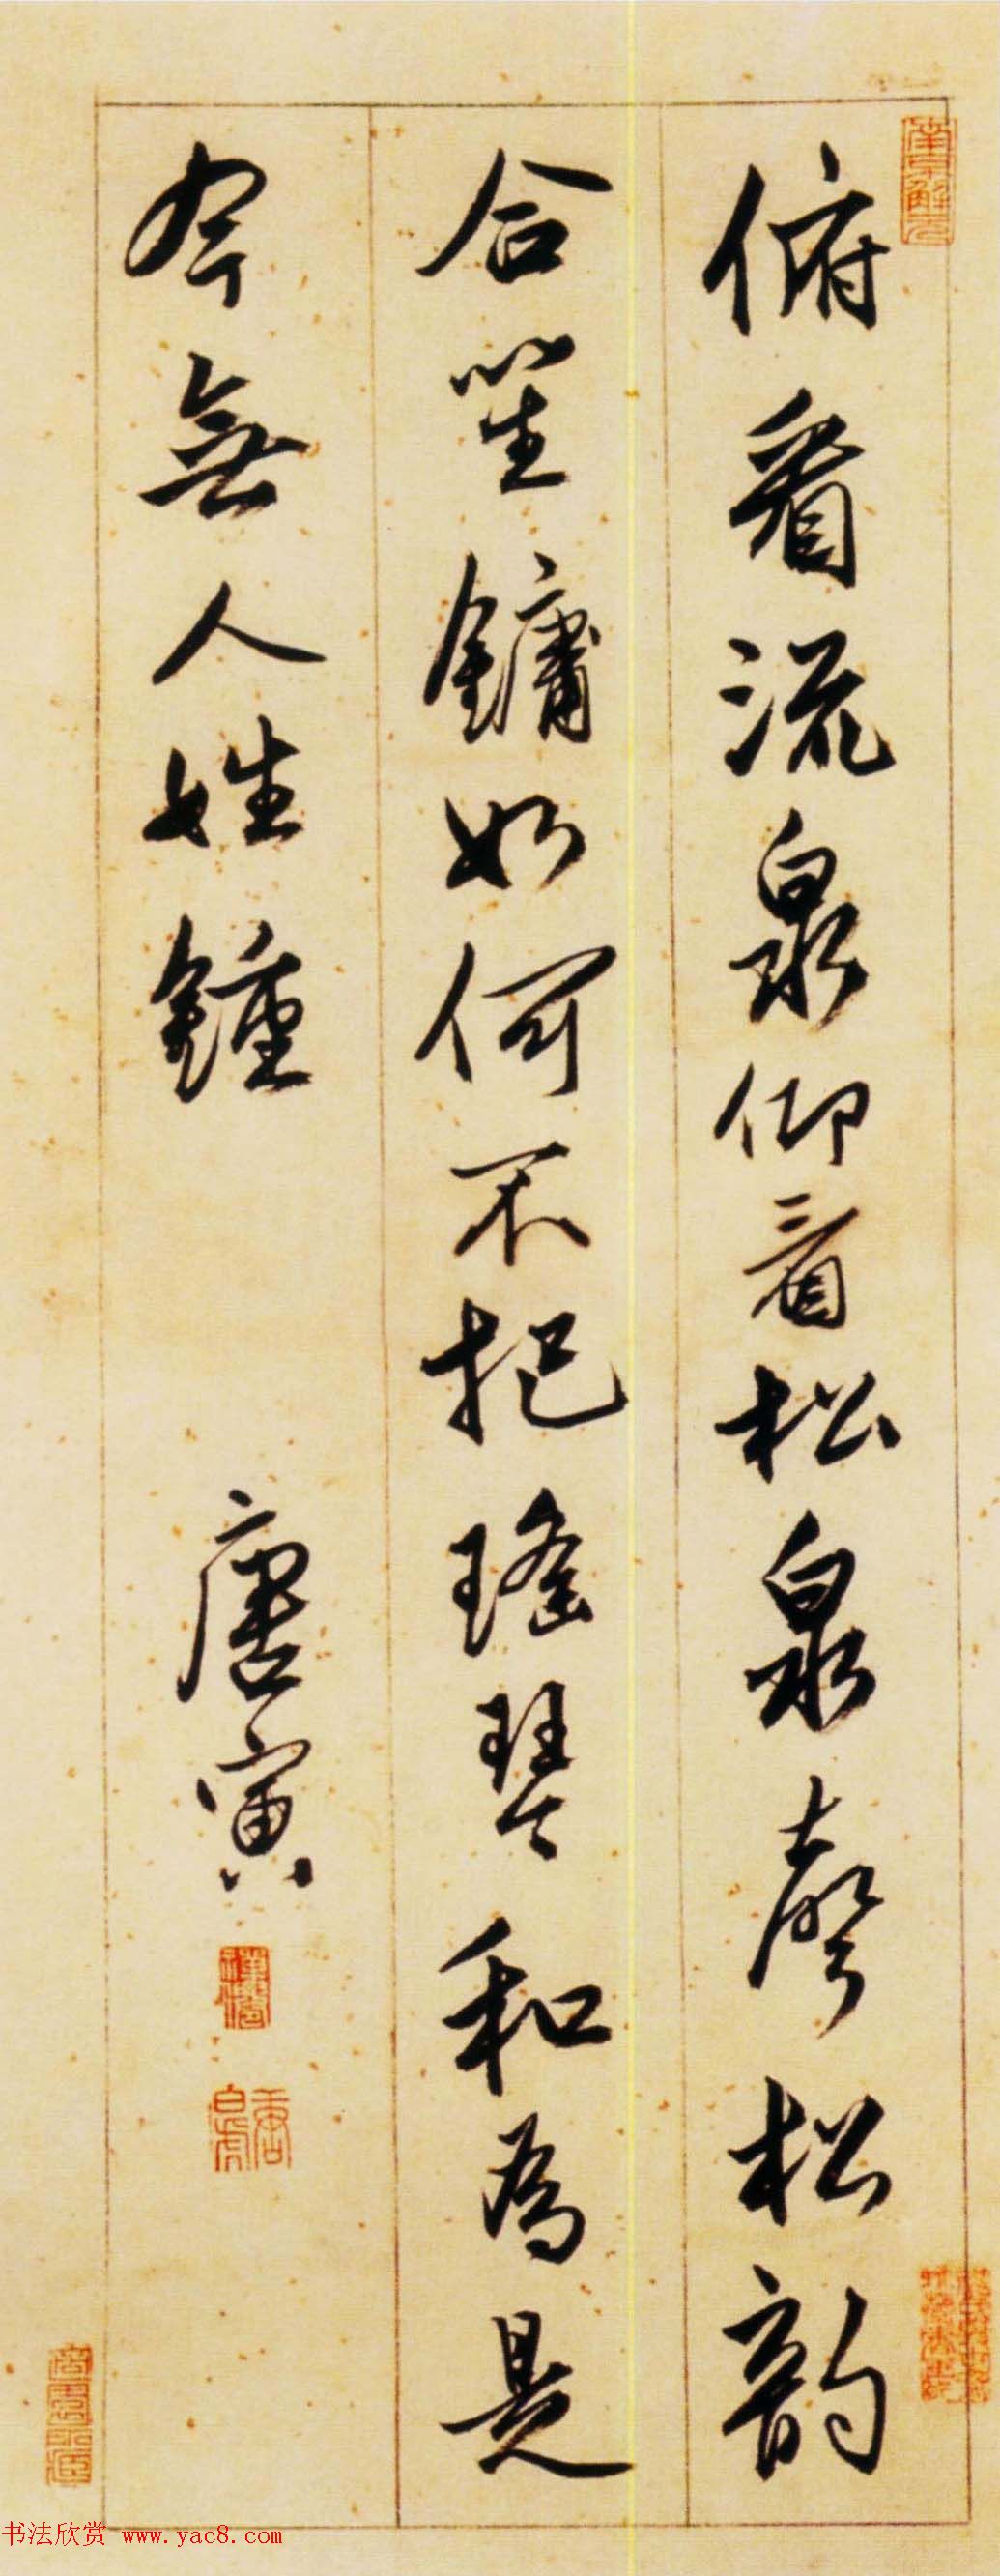 俯看流泉仰看松泉聲松韵
合笙鏞如何不把瑤琴和為是
今無人姓鍾
唐寅
南京解元
唐白虎
书法欣赏 www.yac8.com